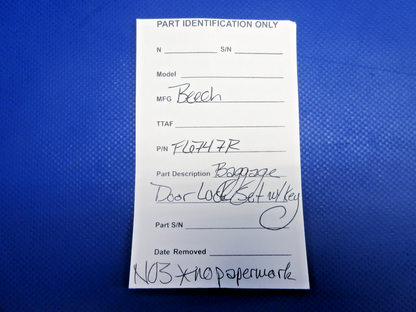 PART IDENTIFICATION ONLY
N S/N
Model
MFG Beech
TTAF
P/N FL6747R
Part Description Baggage
Door Lock Set w/ key
Part S/N
Date Removed
NO3 *no paperwork